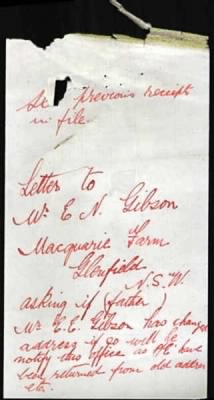 previous receipts
in file
Letter to
Mr E. N. Gibson
Macquarie Farm
Glenfield
N.S.W.
asking if (father)
Mr E.E. Gibson has changed
address if so will he
notify this office as have
been returned from old address
etc.